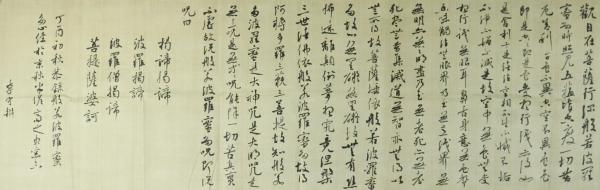 觀自在菩薩行深般若波羅
蜜多時照見五蘊皆空度一切苦
厄舍利子色不異空空不異色色
即是空空即是色受想行識亦復如
是舍利子是諸法空相不生不滅不垢
不淨不增不減是故空中無色無受
想行識無眼耳鼻舌身意無色聲香味
觸法無眼界乃至無意識界無
無明亦無無明盡乃至無老死亦無老
死盡無苦集滅道無智亦無得以
無所得故菩提薩埵依般若波羅蜜
多故心無罣礙無罣礙故無有恐
怖遠離顛倒夢想究竟涅槃
三世諸佛依般若波羅蜜多故得
阿耨多羅三藐三菩提故知般若
波羅蜜多是大神咒是大明咒是
無上咒是無等等咒能除一切苦真實
不虛故說般若波羅蜜多咒即說
咒曰
揭諦揭諦
波羅揭諦
波羅僧揭諦
菩提薩婆訶
丁酉初秋恭錄般若波羅蜜
多心經於京
李